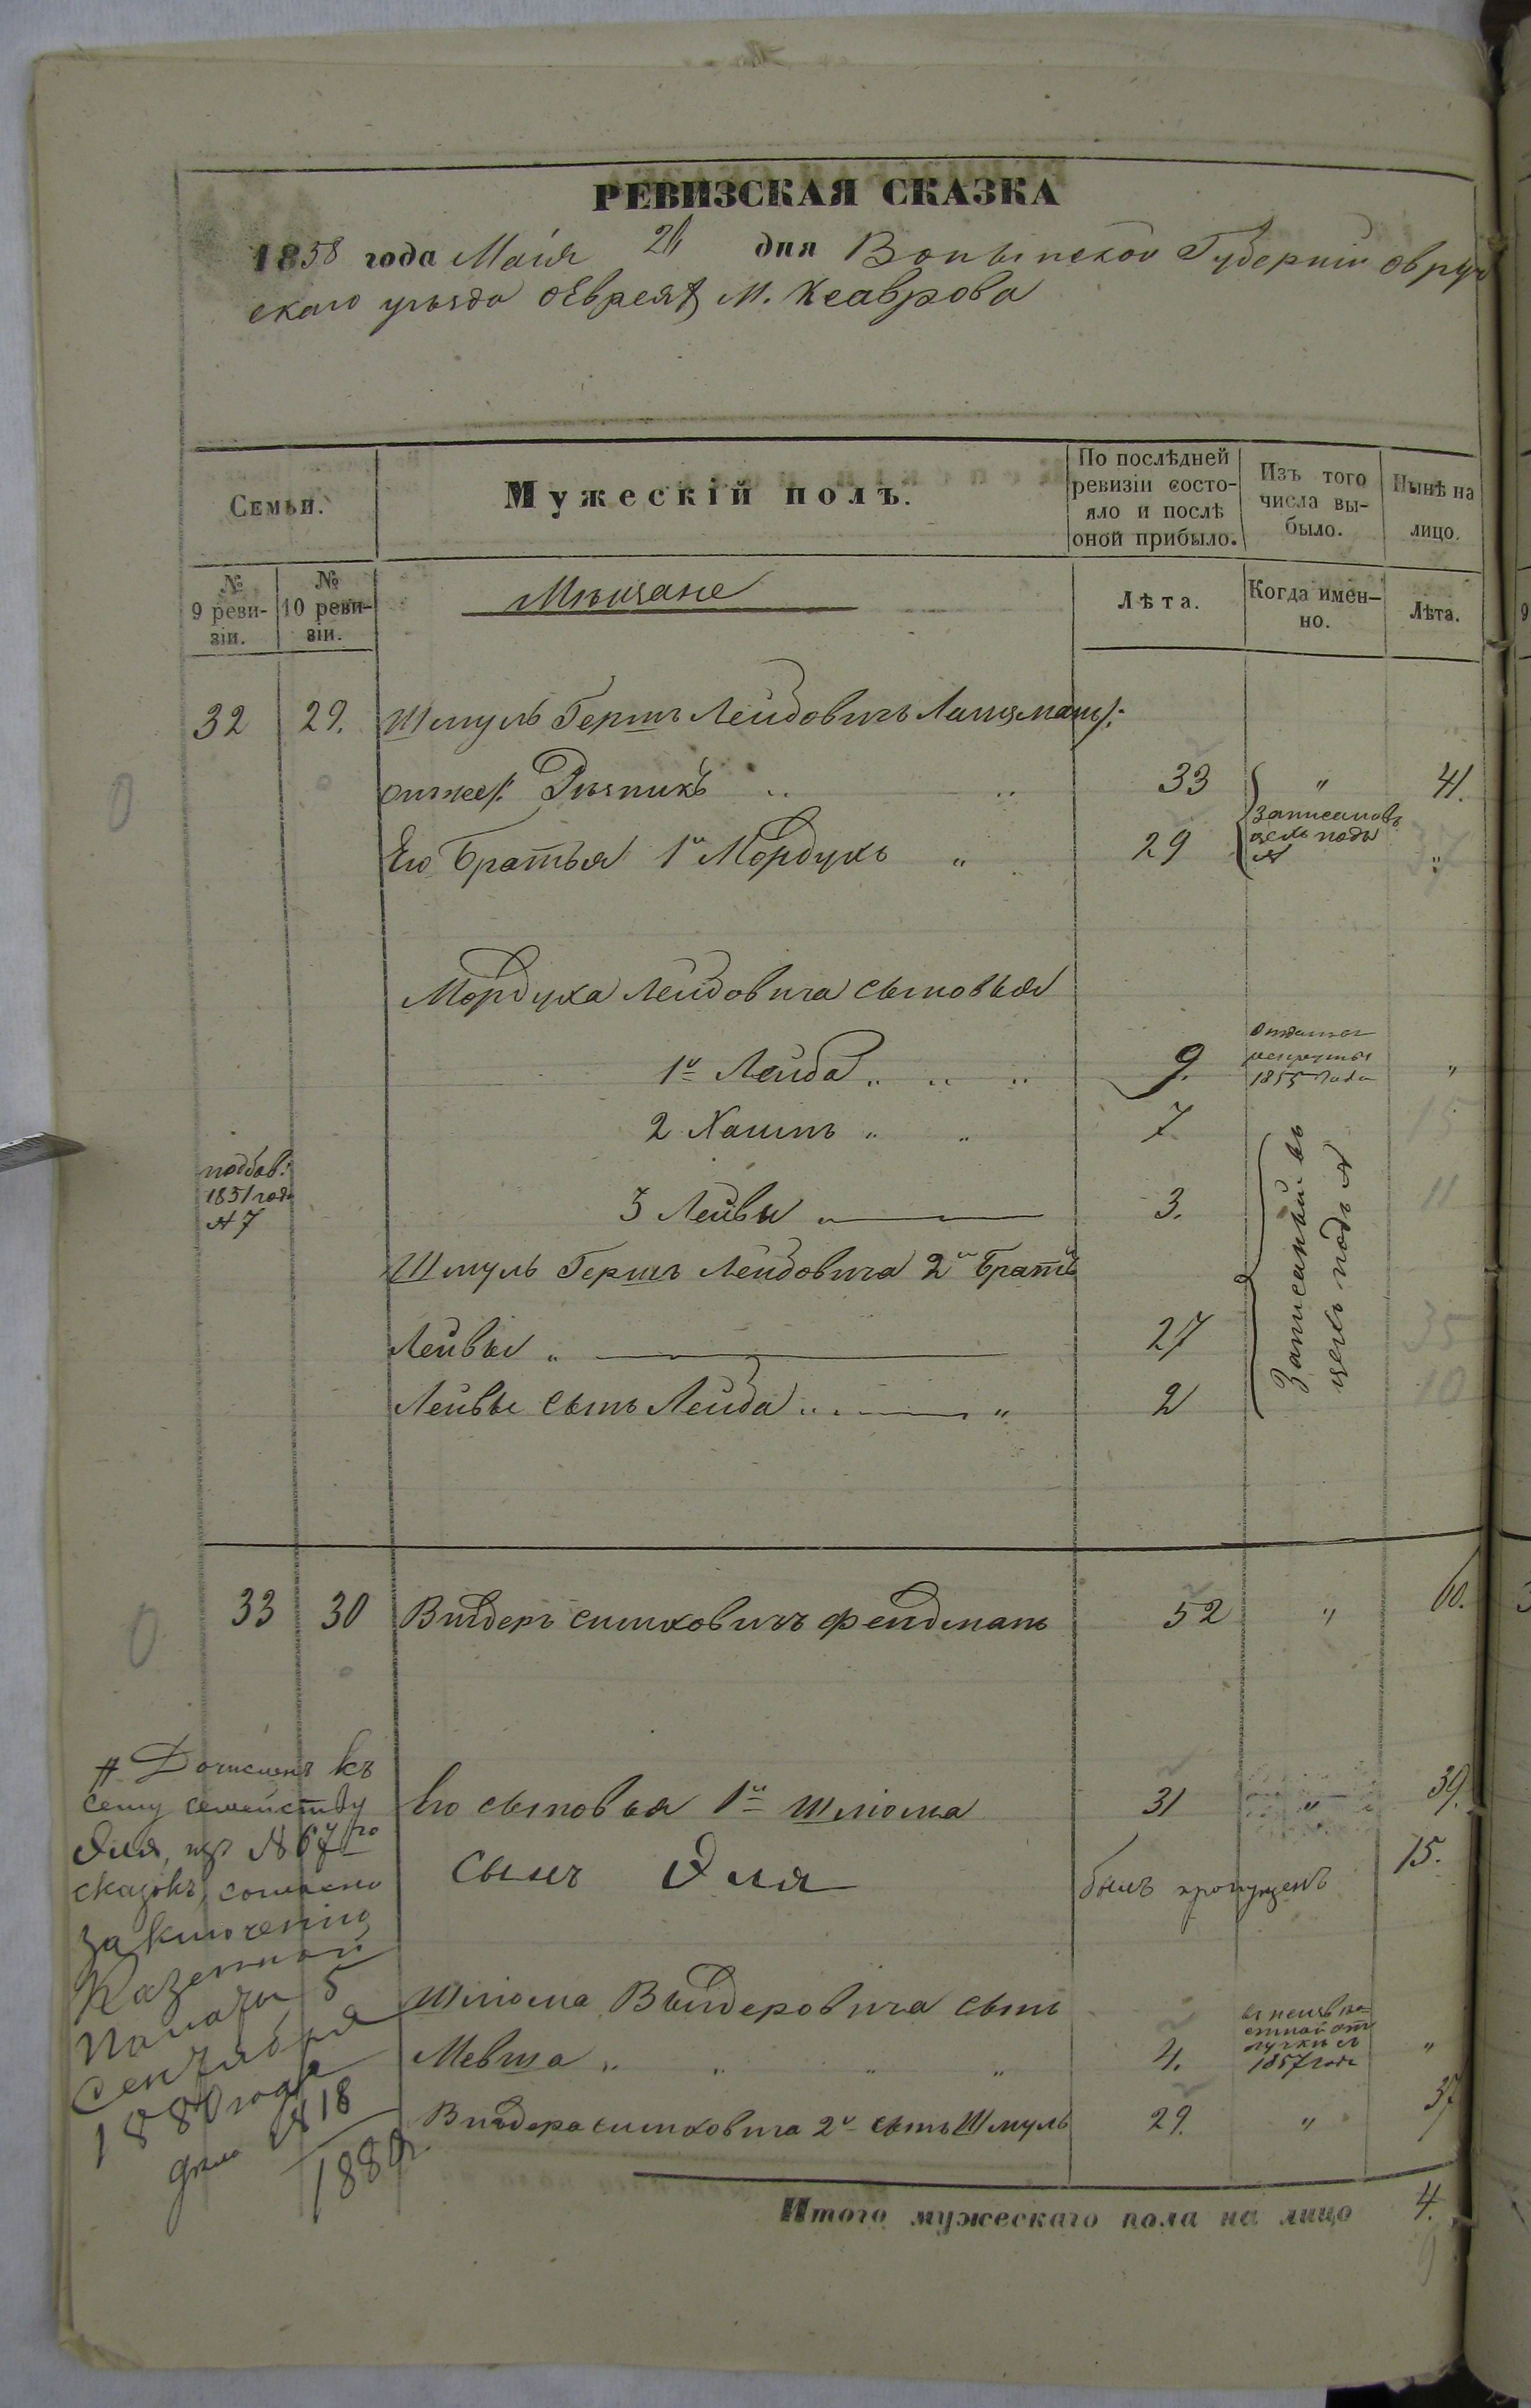 РЕВИЗСКАЯ СКАЗКА
1858 года Маія 26 дня Волынской Губерніи Овруч
скаго уѣзда о Евреяхъ М. Ксаврова
Семьи.
Мужескій полъ.
По послѣдней ревизіи состояло и послѣ оной прибыло.
Изъ того числа выбыло.
Нынѣ на лицо.
№ 9 ревизіи.
№ 10 ревизіи.
Мѣщане
Лѣта.
Когда именно.
Лѣта.
32 29. Шмуль Гершъ Лейбовичъ
онъ же Рѣзникъ 33 " 41.
Его Братья 1й Мордухъ " 29 записановъ цехъ подъ № "
Мордуха Лейбовича сыновья
1й Лейба 9. Отданъ рекруты 1855 года "
2 Хаимъ " " 7 15
подбав: 1851 года № 7
3 Лейвы 3. 11
Записаный въ цехъ подъ №
Шмуль Гершъ Лейбовича 2й Братъ
Лейвы " 27 35
Лейвы сынъ Лейба " 2 10
33 30 Видеръ симховичъ Фельдманъ 52 " 60.
Его сыновья 1й Шліома 31 " 39.
сынъ Эля былъ пропущенъ 15.
Шліома Видеровича сынъ
Мевша " " " " 4. въ неизвѣстной отлучки съ 1857 года "
Видера симховича 2й сынъ Шмуль 29. " 37
Дописанъ къ
сему семейству
Эля, изъ № 67го
сказокъ, согласно
заключенію
Казенной
Палаты 5
Сентября
1880 года
дѣло № 18
1880г.
Итого мужескаго пола на лицо 4.